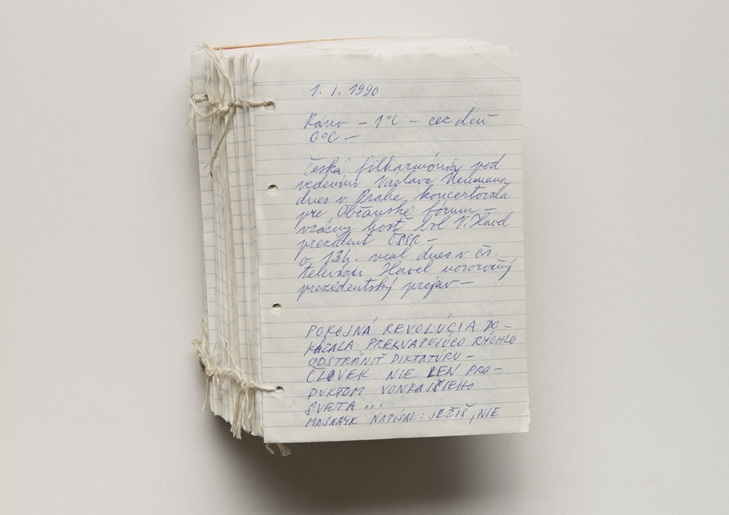 1. I. 1990
Ráno – 1°C – cez deň
0°C –
Česká filharmónia pod
vedením Václava Neumana
dnes v Prahe koncertovala
pre Občanské fórum –
vzácny hosť bol V. Havel
prezident ČSSR –
o 13h. mal dnes v čs.
televízii Havel novoročný
prezidentský prejav –
POKOJNÁ REVOLÚCIA DO–
KÁZALA PREKVAPUJÚCO RÝCHLO
ODSTRÁNIŤ DIKTATÚRU –
ČLOVEK NIE LEN PRO–
DUKTOM VONKAJŠIEHO
SVETA ...
MASARYK NAPÍSAL: JEŽIŠ, NIE